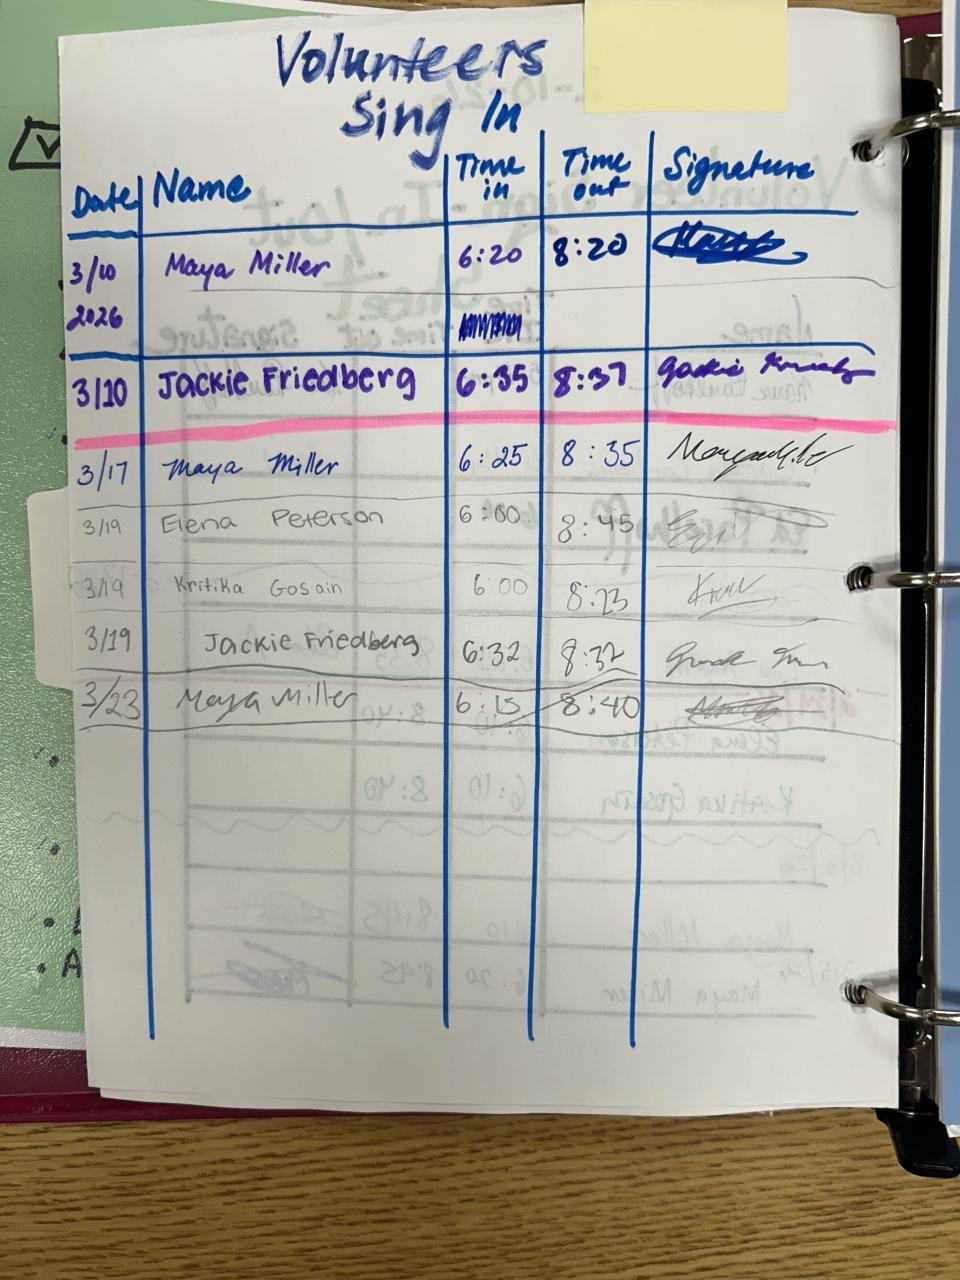 Volunteers
Sing In
Date Name Time in Time out Signature
3/10 2026 Maya Miller 6:20 8:20
3/10 Jackie Friedberg 6:35 8:37
3/17 Maya Miller 6:25 8:35
3/19 Elena Peterson 6:00 8:45
3/19 Kritika Gosain 6:00 8:23
3/19 Jackie Friedberg 6:32 8:32
3/23 Maya Miller 6:15 8:40